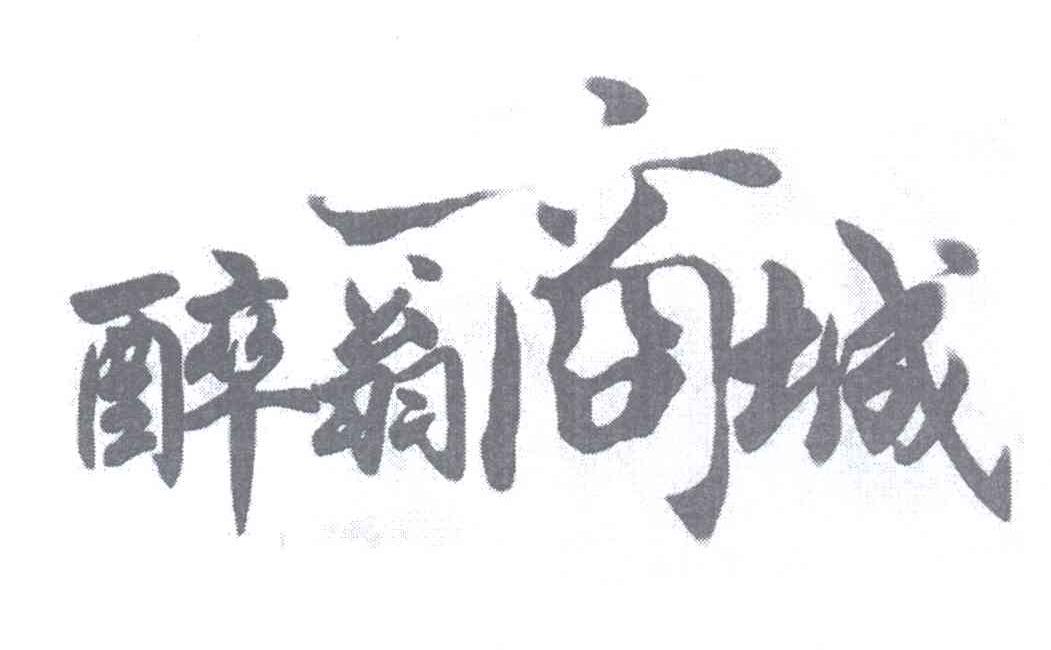 醉翁商城